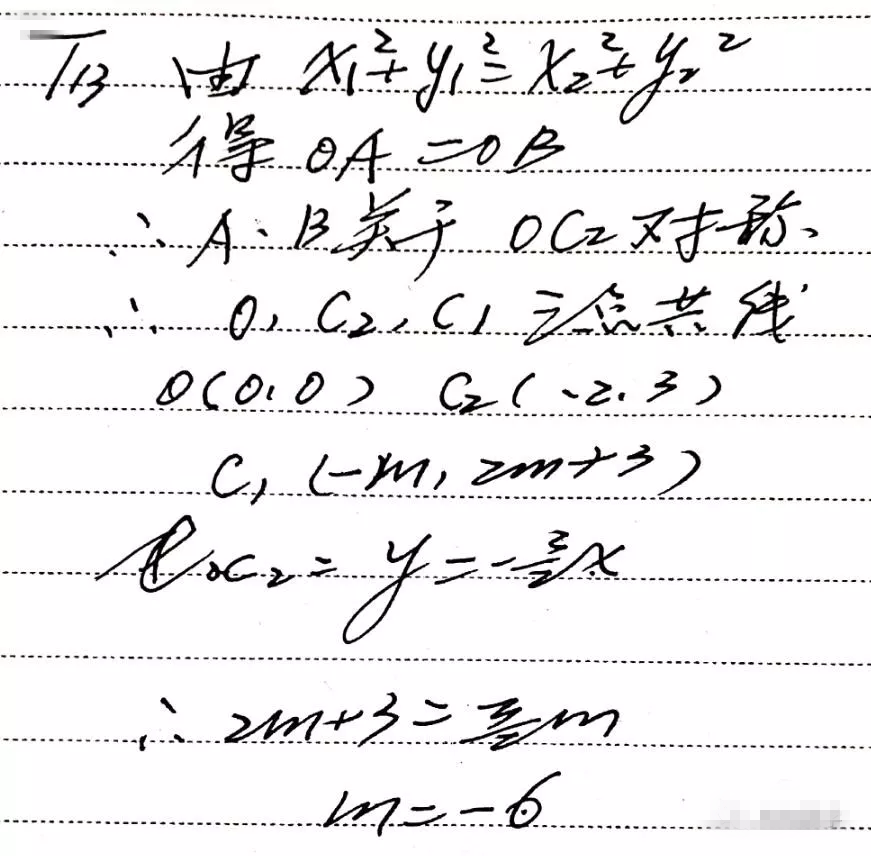 T13 由 x₁²+y₁²=x₂²+y₂²
得 OA=OB
∴ A、B关于 OC₂对称、
∴ O, C₂, C₁ 三点共线
O(0,0) C₂(-2.3)
C₁(-m, 2m+3)
l_{OC₂}= y=-\frac{3}{2}x
∴ 2m+3=\frac{3}{2}m
m=-6